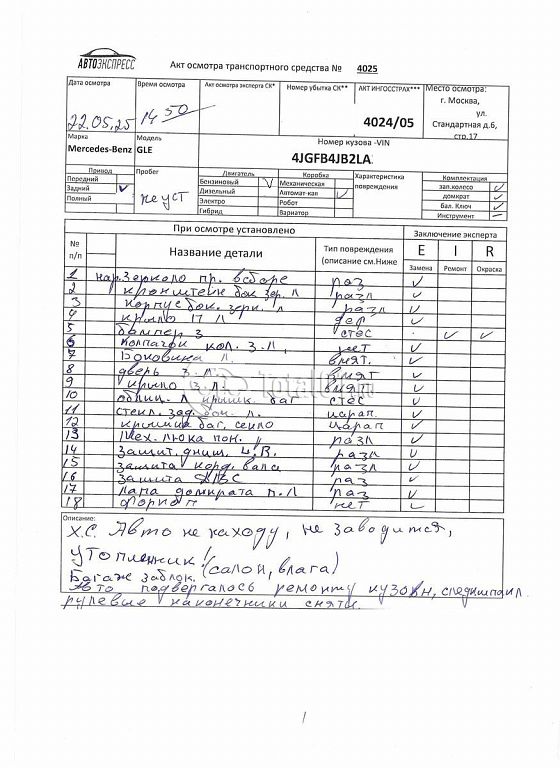 АВТОЭКСПРЕСС
Акт осмотра транспортного средства № 4025
Дата осмотра
22.05,25
Время осмотра
14 50
Акт осмотра эксперта СК*
Номер убытка СК**
АКТ ИНГОССТРАХ***
4024/05
Место осмотра:
г. Москва,
ул.
Стандартная д.6,
стр.17
Марка
Mercedes-Benz
Модель
GLE
Номер кузова -VIN
4JGFB4JB2LA
Привод
Передний
Задний
Полный
Пробег
не уст
Двигатель
Бензиновый
Дизельный
Электро
Гибрид
Коробка
Механическая
Автомат-кая
Робот
Вариатор
Характеристика
повреждения
Комплектация
зап.колесо
домкрат
бал. Ключ
Инструмент
При осмотре установлено
Заключение эксперта
№
п/п
Название детали
Тип повреждения
(описание см.Ниже
E I R
Замена Ремонт Окраска
1 нар. зеркало пр. в сборе раз ✓
2 кронштейн бок зер. л разл ✓
3 корпус бок. зерк. л разл ✓
4 крыло П Л деф ✓
5 бампер з стес ✓ ✓
6 колпачок кол. з.л, нет ✓
7 Боковина л. вмят. ✓
8 дверь з.л. вмят ✓
9 крыло з.л. вмят ✓
10 облиц. л крышк. баг стес ✓
11 стекл. зад. бок. л. царап. ✓
12 крышка баг, стекло царап ✓
13 Мех. люка пон. разл ✓
14 Защит. днищ. разл ✓
15 защита кард. вала разл ✓
16 защита раз ✓
17 лапа домкрата п.л раз ✓
18 нет ✓
Описание:
Х.С. Авто не находу, не заводится,
утопленник! (салон, влага)
Багаж заблок.
Авто подвергалось ремонту кузовн,
рулевые наконечники сняты.
1